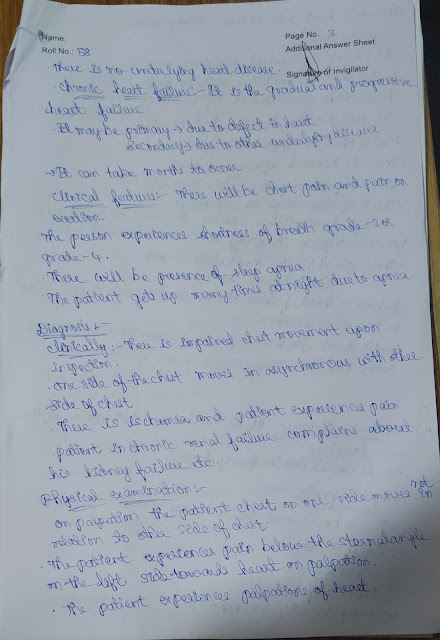 Name:
Roll No.: 58
Page No. 3
Additional Answer Sheet
Signature of Invigilator
There is no underlying heart disease.
Chronic heart failure:- It is the gradual and progressive
heart failure.
It may be primary → due to defect in heart
Secondary → due to other underlying diseases
→ It can take month to occur
Clinical features:- There will be chest pain and pain on
exertion.
The person experiences shortness of breath grade-3 or
grade-4.
· There will be presence of sleep apnea.
· The patient gets up many times at night due to apnea.
Diagnosis:-
Clinically:- There is impaired chest movement upon
inspection.
· one side of the chest moves in asynchronous with other
side of chest.
There is ischemia and patient experiences pain
patient in chronic renal failure complains about
his kidney failure etc.
Physical examination:-
on palpation the patient chest on one side moves not in
relation to other side of chest
· The patient experiences pain below the sternal angle
on the left side towards heart on palpation.
· The patient experiences palpations of heart.